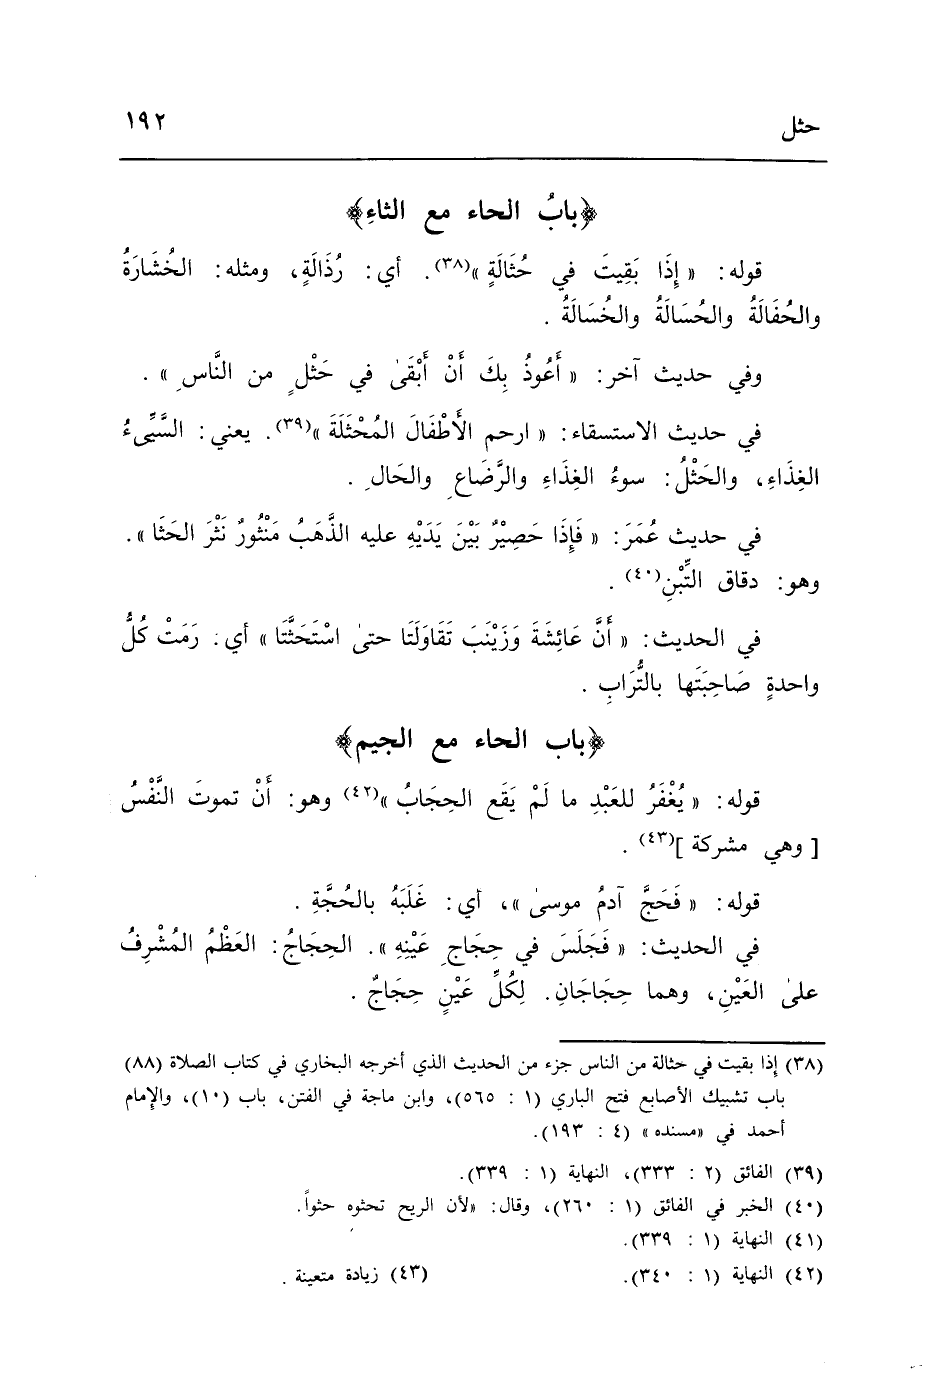 حثل ١٩٢
﴿بابُ الحاء مع الثاءِ﴾
قوله: « إِذَا بَقِيتَ في حُثَالَةٍ »(٣٨). أي: رُذَالَةٍ، ومثله: الخُشَارَةُ
والحُفَالَةُ والحُسَالَةُ والخُسَالَةُ .
وفي حديث آخر: « أَعُوذُ بِكَ أَنْ أَبْقَىٰ في حَثْلٍ من النَّاسِ » .
في حديث الاستسقاء: « ارحم الأَطْفَالَ المُحْثَلَةَ »(٣٩). يعني: السَّيِّىءُ
الغِذَاءِ، والحَثْلُ: سوءُ الغِذَاءِ والرَّضَاعِ والحَالِ .
في حديث عُمَرَ: « فَإِذَا حَصِيْرٌ بَيْنَ يَدَيْهِ عليه الذَّهَبُ مَنْثُورٌ نَثْرَ الحَثَا ».
وهو: دقاق التِّبْنِ(٤٠) .
في الحديث: « أَنَّ عَائِشَةَ وَزَيْنَبَ تَقَاوَلَتَا حتىٰ اسْتَحَثَّتَا » أي: رَمَتْ كُلُّ
واحدةٍ صَاحِبَتَها بالتُّرَابِ .
﴿باب الحاء مع الجيم﴾
قوله: « يُغْفَرُ للعَبْدِ ما لَمْ يَقَع الحِجَابُ »(٤٢) وهو: أَنْ تموتَ النَّفْسُ
[ وهي مشركة ](٤٣) .
قوله: « فَحَجَّ آدمُ موسىٰ »، أي: غَلَبَهُ بالحُجَّةِ .
في الحديث: « فَجَلَسَ في حِجَاجِ عَيْنِهِ ». الحِجَاجُ: العَظْمُ المُشْرِفُ
علىٰ العَيْنِ، وهما حِجَاجَانِ. لِكُلِّ عَيْنٍ حِجَاجٌ .
(٣٨) إذا بقيت في حثالة من الناس جزء من الحديث الذي أخرجه البخاري في كتاب الصلاة (٨٨)
باب تشبيك الأصابع فتح الباري (١ : ٥٦٥)، وابن ماجة في الفتن، باب (١٠)، والإمام
أحمد في «مسنده» (٤ : ١٩٣).
(٣٩) الفائق (٢ : ٣٣٣)، النهاية (١ : ٣٣٩).
(٤٠) الخبر في الفائق (١ : ٢٦٠)، وقال: «لأن الريح تحثوه حثواً.
(٤١) النهاية (١ : ٣٣٩).
(٤٢) النهاية (١ : ٣٤٠). (٤٣) زيادة متعينة .